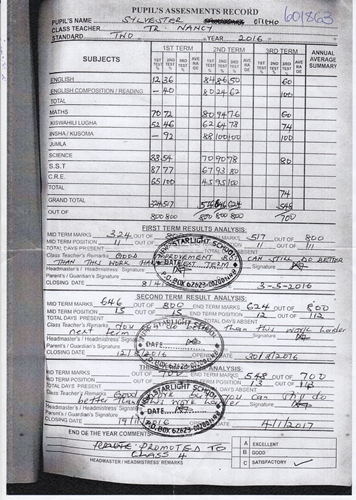 PUPIL'S ASSESMENTS RECORD
PUPIL'S NAME SYLVESTER OTIENO 601863
CLASS TEACHER TR. NANCY
STANDARD TWO YEAR 2016
SUBJECTS 1ST TERM 2ND TERM 3RD TERM ANNUAL AVERAGE SUMMARY
1ST TEST % 2ND TEST % 3RD TEST % AVE RA GE 1ST TEST % 2ND TEST % 3RD TEST % AVE RA GE 1ST TEST % 2ND TEST % 3RD TEST %
ENGLISH 12 36 84 86 50 60
ENGLISH COMPOSITION / READING - 40 80 24 62 100
TOTAL
MATHS 70 72 80 94 76 60
KISWAHILI LUGHA 52 46 62 64 78 74
INSHA / KUSOMA - 92 88 100 100 100
JUMLA
SCIENCE 88 54 70 90 78 80
S.S.T 87 77 67 93 80
C.R.E. 65 100 45 95 100
TOTAL 74
GRAND TOTAL 324 517 646 624 548
OUT OF 800 800 800 800 800 700
FIRST TERM RESULTS ANALYSIS:
MID TERM MARKS 324 OUT OF 517 OUT OF 800
MID TERM POSITION 11 OUT OF 11 OUT OF 11
TOTAL DAYS PRESENT
Class Teacher's Remarks GOOD IMPROVEMENT BUT CAN STILL DO BETTER
THAN THIS WORK HARD NEXT TERM Signature
Headmaster's / Headmistress' Signature
Parent's / Guardian's Signature
CLOSING DATE 8/4/ 3-5-2016
STARLIGHT SCHOOL
DATE
P.O. BOX 62623-00200
SECOND TERM RESULT ANALYSIS:
MID TERM MARKS 646 OUT OF 800 END TERM MARKS 624 OUT OF 800
MID TERM POSITION 15 OUT OF 15 END TERM POSITION 12 OUT OF 112
TOTAL DAYS PRESENT
Class Teacher's Remarks You do Than this work harder
next term Signature
Headmaster's / Headmistress' Signature
Parent's / Guardian's Signature
CLOSING DATE 12/8/2016 30/8/2016
STARLIGHT SCHOOL
DATE
P.O. BOX 62623-00200
MID TERM MARKS 700 548 OUT OF 700
MID TERM POSITION END TERM POSITION 13 OUT OF 113
TOTAL DAYS PRESENT
Class Teacher's Remarks Good You can still do
better Than work harder Signature
Headmaster's / Headmistress' Signature
Parent's / Guardian's Signature
CLOSING DATE 19/11/2016 4/1/2017
STARLIGHT SCHOOL
DATE
P.O. BOX 62623-00200
END OF THE YEAR COMMENTS:
PROMOTED TO
CLASS
HEADMASTER / HEADMISTRESS REMARKS
A EXCELLENT
B GOOD
C SATISFACTORY ✓